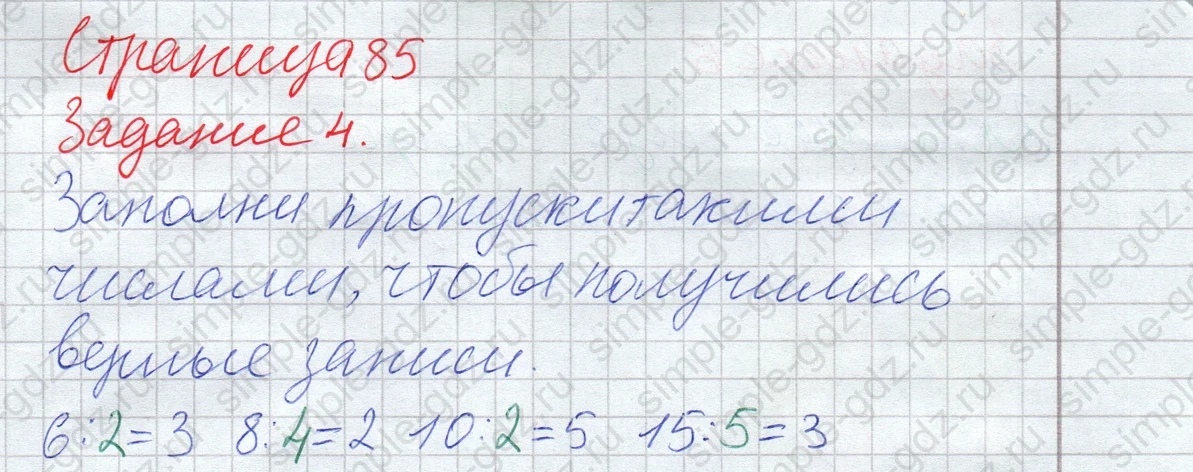 Страница 85
Задание 4.
Заполни пропуски такими
числами, чтобы получились
верные записи.
6:2=3 8:4=2 10:2=5 15:5=3
simple-gdz.ru